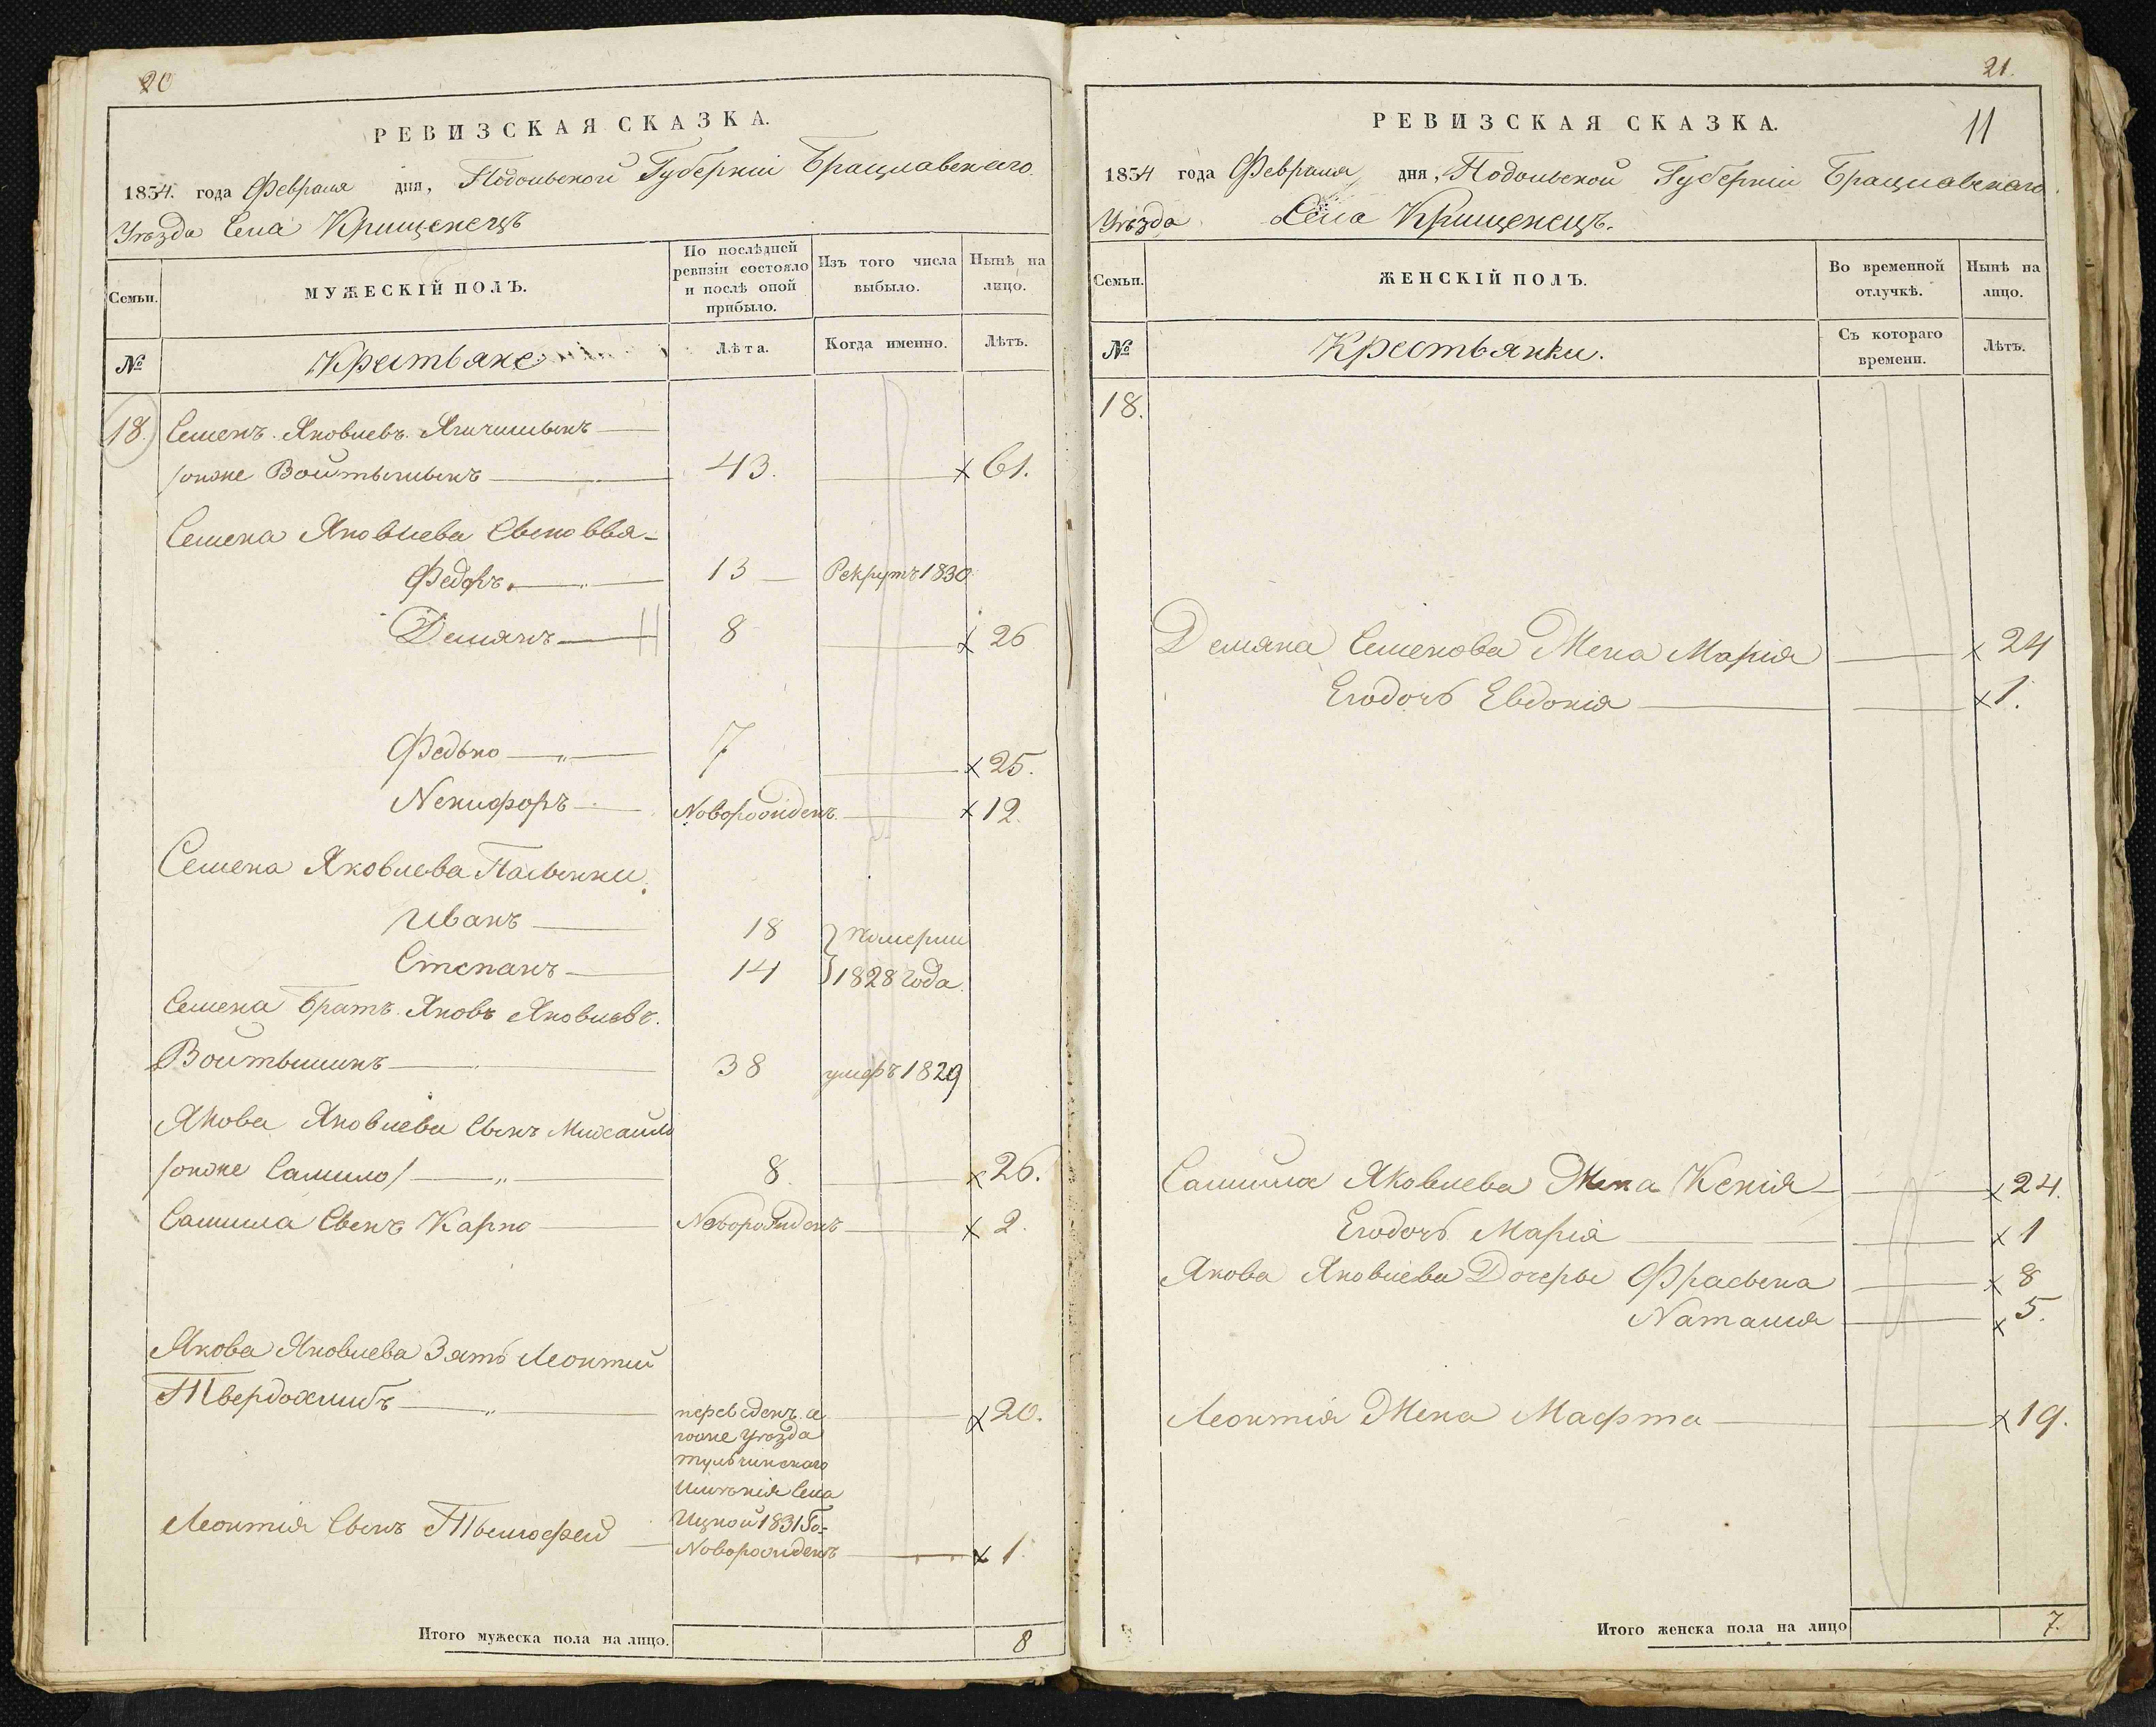 20
РЕВИЗСКАЯ СКАЗКА.
1834. года Февраля дня, Подольской Губерніи Брацлавскаго
Уѣзда Села Крищенецъ
Семьи.
МУЖЕСКІЙ ПОЛЪ.
По послѣдней ревизіи состояло и послѣ оной прибыло.
Изъ того числа выбыло.
Нынѣ на лицо.
№
Крестьяне
Лѣта.
Когда именно.
Лѣтъ.
18. Семенъ Яковлевъ
/онже Войтышынъ 43. 61.
Семена Яковлева Сыновья
Федоръ 13 Рекрутъ 1830
Демянъ 8 26
Федько 7 25.
Никифоръ Новорожденъ 12.
Семена Яковлева Пасынки
Иванъ 18 померли
Степанъ 14 1828 года
Семена Братъ Яковъ Яковлевъ
Войтышинъ 38 умеръ 1829
Якова Яковлева Сынъ Михайло
/онже Самило/ 8. 26.
Самила Сынъ Карпо Новорожденъ 2.
Якова Яковлева Зять Леонтій
Твердохлибъ переведенъ 20.
гоже Уѣзда
тульчинскаго
Имѣнія Села
1831 Го
Леонтія Сынъ Тымофей
Новорожденъ 1.
Итого мужеска пола на лицо. 8
21.
11
РЕВИЗСКАЯ СКАЗКА.
1834 года Февраля дня, Подольской Губерніи Брацлавскаго
Уѣзда Села Крищенецъ.
Семьи.
ЖЕНСКІЙ ПОЛЪ.
Во временной отлучкѣ.
Нынѣ на лицо.
№
Крестьянки.
Съ котораго времени.
Лѣтъ.
18.
Демяна Семенова Жена Марія 24
Егодочь Евдокія 1.
Самила Яковлева Жена Ксенія 24.
Егодочь Марія 1
Якова Яковлева Дочеры Фрасына 8
Наталія 5.
Леонтія Жена Марфта 19.
Итого женска пола на лицо 7.